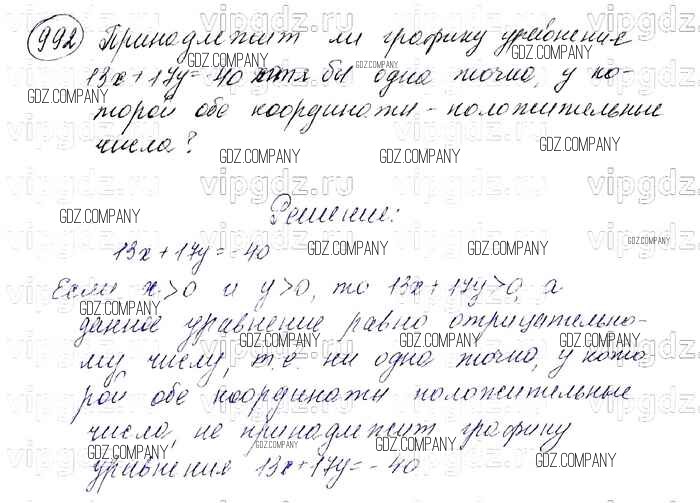 992 Принадлежит ли графику уравнения
13x+17y=-40 хотя бы одна точка, у ко-
торой обе координаты - положительные
числа?
Решение:
13x+17y=-40
Если x>0 и y>0, то 13x+17y>0, а
данное уравнение равно отрицательно-
му числу, т.е. ни одна точка, у кото-
рой обе координаты положительные
числа, не принадлежит графику
уравнения 13x+17y=-40